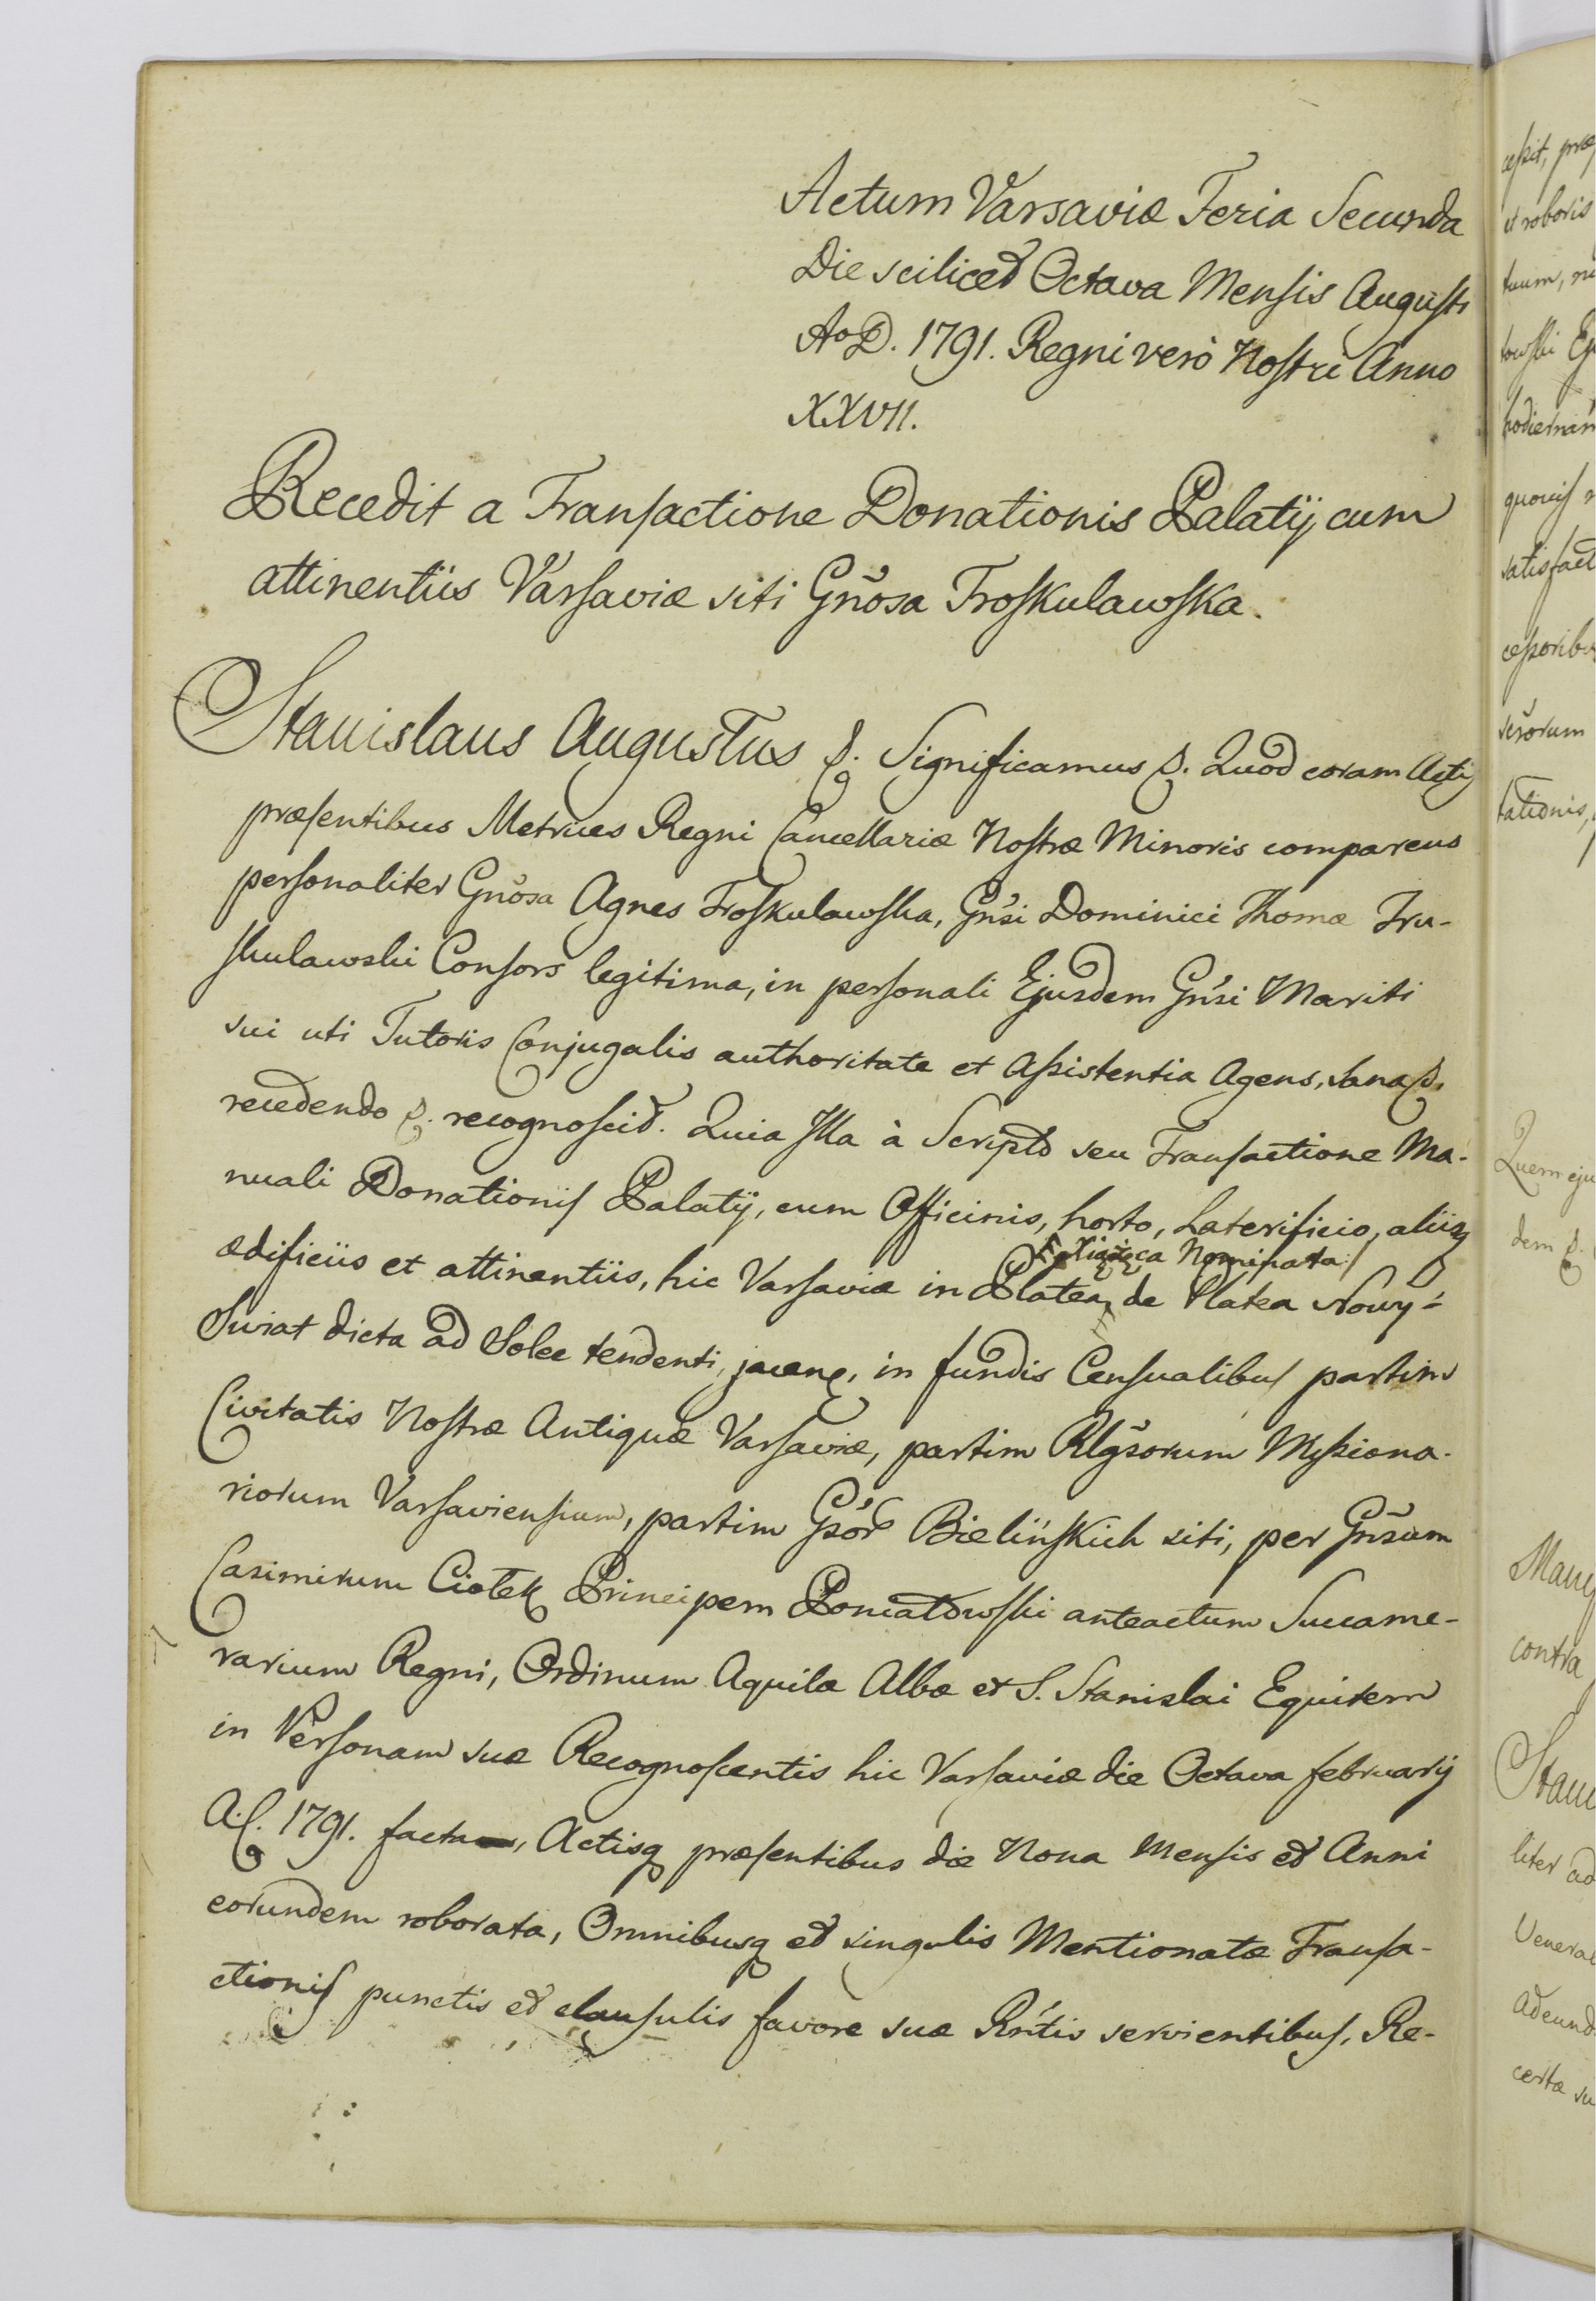 Actum Varsaviæ Feria Secunda
Die scilicet Octava Mensis Augusti
Ao D. 1791. Regni verò Nostri Anno
XXVII.
Recedit a Transactione Donationis Palatÿ cum
attinentiis Varsaviæ siti Gñosa Troskulawska.
Stanislaus Augustus &. Significamus &. Quod coram Actis
præsentibus Metrices Regni Cancellariæ Nostræ Minoris comparens
personaliter Gnosa Agnes Troskulawska, Gnsi Dominici Thomæ Tru-
skulawski Consors legitima, in personali Ejusdem Gnsi Mariti
sui uti Tutoris Conjugalis authoritate et Assistentia Agens, sana &.
recedendo &. recognoscit. Quia Illa à Scripto seu Transactione Ma-
nuali Donationis Palatÿ, cum Officinis, horto, Laterificio, aliisq
Xiążęca Nominata
ædificiis et attinentiis, hic Varsaviæ in Platea de Platea Nowy-
Swiat dicta ad Solec tendenti, jacen, in fundis Censualibus partim
Civitatis Nostræ Antiquæ Varsaviæ, partim Rlgsorum Missiona-
riorum Varsaviensium, partim Gsor Bielińskich siti, per Gnsum
Casimirum Ciołek Principem Poniatowski anteactum Succame-
rarium Regni, Ordinum Aquilæ Albæ et S. Stanislai Equitem
in Personam suæ Recognoscentis hic Varsaviæ die Octava februarij
A. C. 1791. facta, Actisq præsentibus die Nona Mensis et Anni
eorundem roborata, Omnibusq et singulis Mentionatæ Transa-
ctionis punctis et clausulis favore suæ Rntis servientibus, Re-
cessit, præ
et roboris
tuum, ne
towski Ej
hodiernam
quovis
satisfact
cessoribus
tationis,
Quem eju
dem &.
contra
Stani
liter ad
Venerab
adeund
certæ su